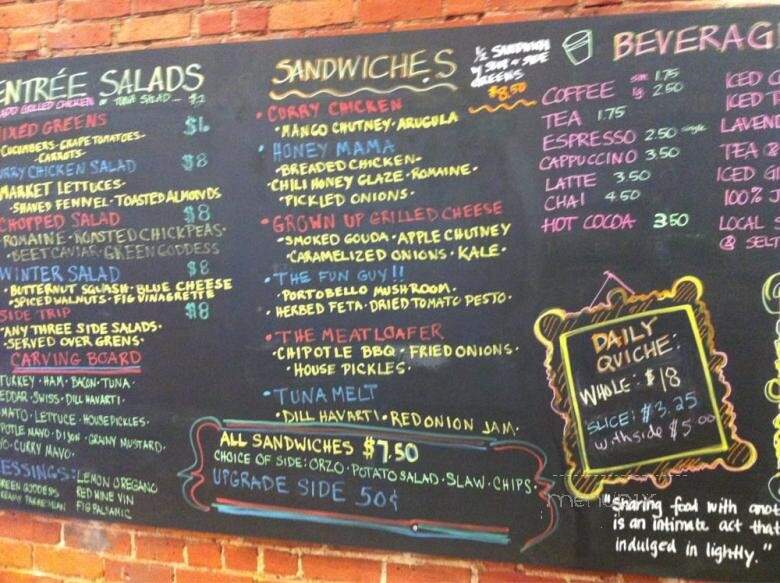 ENTRÉE SALADS
ADD GRILLED CHICKEN or TUNA SALAD - $2
MIXED GREENS $6
CUCUMBERS·GRAPE TOMATOES·
CARROTS·
CURRY CHICKEN SALAD $8
MARKET LETTUCES·
·SHAVED FENNEL·TOASTED ALMONDS
CHOPPED SALAD $8
ROMAINE·ROASTED CHICKPEAS·
BEET CAVIAR·GREEN GODDESS
WINTER SALAD $8
·BUTTERNUT SQUASH·BLUE CHEESE
·SPICED WALNUTS·FIG VINAGRETTE
SIDE TRIP $8
·ANY THREE SIDE SALADS·
·SERVED OVER GRENS·
CARVING BOARD
TURKEY·HAM·BACON·TUNA
EDDAR·SWISS·DILL HAVARTI·
MATO·LETTUCE·HOUSE PICKLES·
POTLE MAYO·DIJON·GRAINY MUSTARD·
YO·CURRY MAYO·
ESSINGS: LEMON OREGANO
GREEN GODDESS RED WINE VIN
CREAMY PARMESAN FIG BALSAMIC
SANDWICHES
½ SANDWICH
W/ SOUP or SIDE
GREENS
$8.50
·CURRY CHICKEN
·MANGO CHUTNEY·ARUGULA
·HONEY MAMA
·BREADED CHICKEN·
·CHILI HONEY GLAZE·ROMAINE·
·PICKLED ONIONS·
·GROWN UP GRILLED CHEESE
·SMOKED GOUDA·APPLE CHUTNEY
·CARAMELIZED ONIONS·KALE·
·THE FUN GUY!!
·PORTOBELLO MUSHROOM·
·HERBED FETA·DRIED TOMATO PESTO·
·THE MEATLOAFER
·CHIPOTLE BBQ·FRIED ONIONS·
·HOUSE PICKLES·
·TUNA MELT
·DILL HAVARTI·RED ONION JAM·
ALL SANDWICHES $7.50
CHOICE OF SIDE: ORZO·POTATO SALAD·SLAW·CHIPS·
UPGRADE SIDE 50¢
BEVERAG
COFFEE sm 1.75
lg 2.50
TEA 1.75
ESPRESSO 2.50 single
CAPPUCCINO 3.50
LATTE 3.50
CHAI 4.50
HOT COCOA 3.50
ICED C
ICED T
LAVEND
TEA @
ICED G
100% J
LOCAL S
@ SELT
DAILY
QUICHE:
WHOLE: $18
SLICE: $3.25
with side $5.00
"Sharing food with anot
is an intimate act tha
indulged in lightly."
menupix